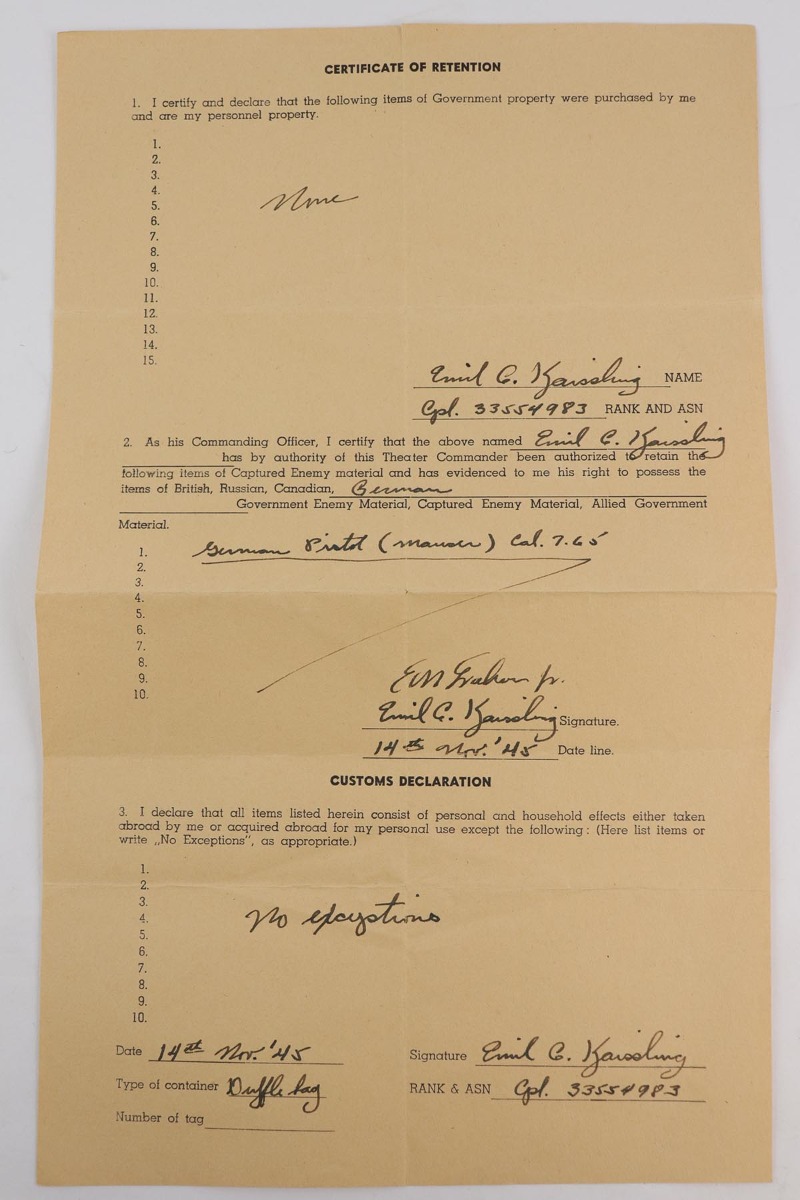 CERTIFICATE OF RETENTION
1. I certify and declare that the following items of Government property were purchased by me
and are my personnel property.
1.
2.
3.
4.
5.
None
6.
7.
8.
9.
10.
11.
12.
13.
14.
15.
Emil C. Kaissling NAME
Cpl. 33554983 RANK AND ASN
2. As his Commanding Officer, I certify that the above named Emil C. Kaissling
has by authority of this Theater Commander been authorized to retain the
following items of Captured Enemy material and has evidenced to me his right to possess the
items of British, Russian, Canadian, German
Government Enemy Material, Captured Enemy Material, Allied Government
Material.
1. German Pistol (Mauser) Cal. 7.65
2.
3.
4.
5.
6.
7.
8.
9.
10.
Jr.
Emil C. Kaissling Signature.
14th Nov. '45 Date line.
CUSTOMS DECLARATION
3. I declare that all items listed herein consist of personal and household effects either taken
abroad by me or acquired abroad for my personal use except the following: (Here list items or
write „No Exceptions", as appropriate.)
1.
2.
3.
4. No exceptions
5.
6.
7.
8.
9.
10.
Date 14th Nov. '45 Signature Emil C. Kaissling
Type of container Duffle bag RANK & ASN Cpl. 33554983
Number of tag